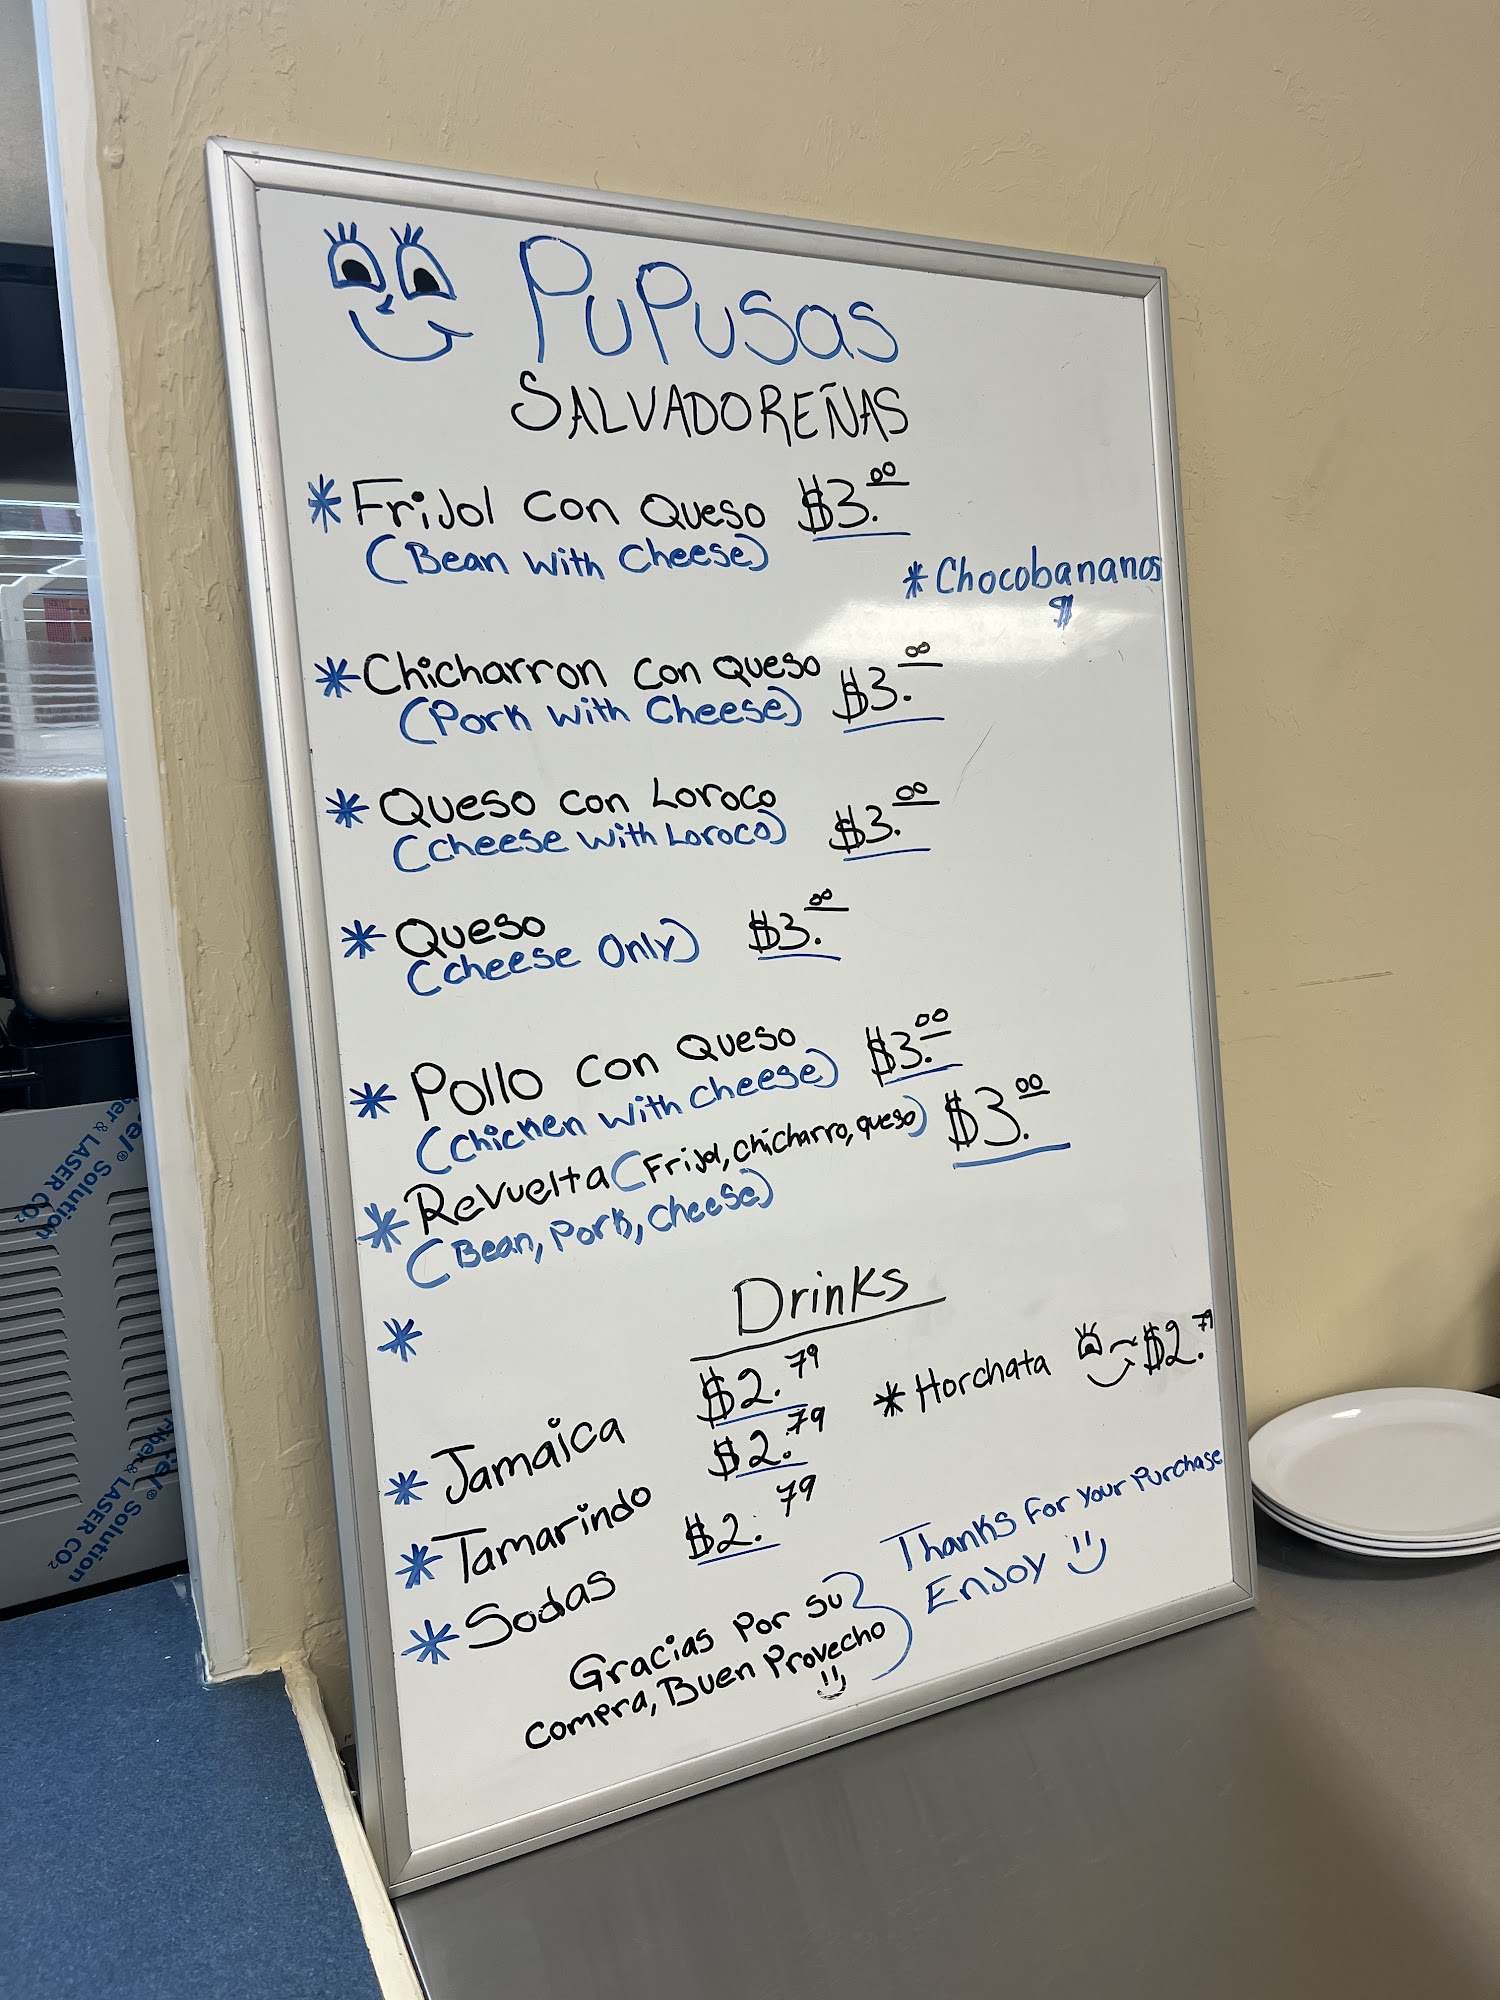 PuPusas
SALVADOREÑAS
* Frijol con Queso $3.00
(Bean with Cheese)
* Chocobananos
$
* Chicharron con Queso $3.00
(Pork with Cheese)
* Queso con Loroco $3.00
(Cheese with Loroco)
* Queso $3.00
(Cheese Only)
* Pollo con Queso $3.00
(Chicken with cheese)
* Revuelta (Frijol, chicharro, queso) $3.00
(Bean, Pork, Cheese)
Drinks
*
* Jamaica $2.79
* Horchata $2.79
* Tamarindo $2.79
* Sodas $2.79
Gracias Por su
compra, Buen Provecho
Thanks For your Purchase
Enjoy
ber & LASER CO2
el® Solution
Fiber & LASER CO2
tel® Solution